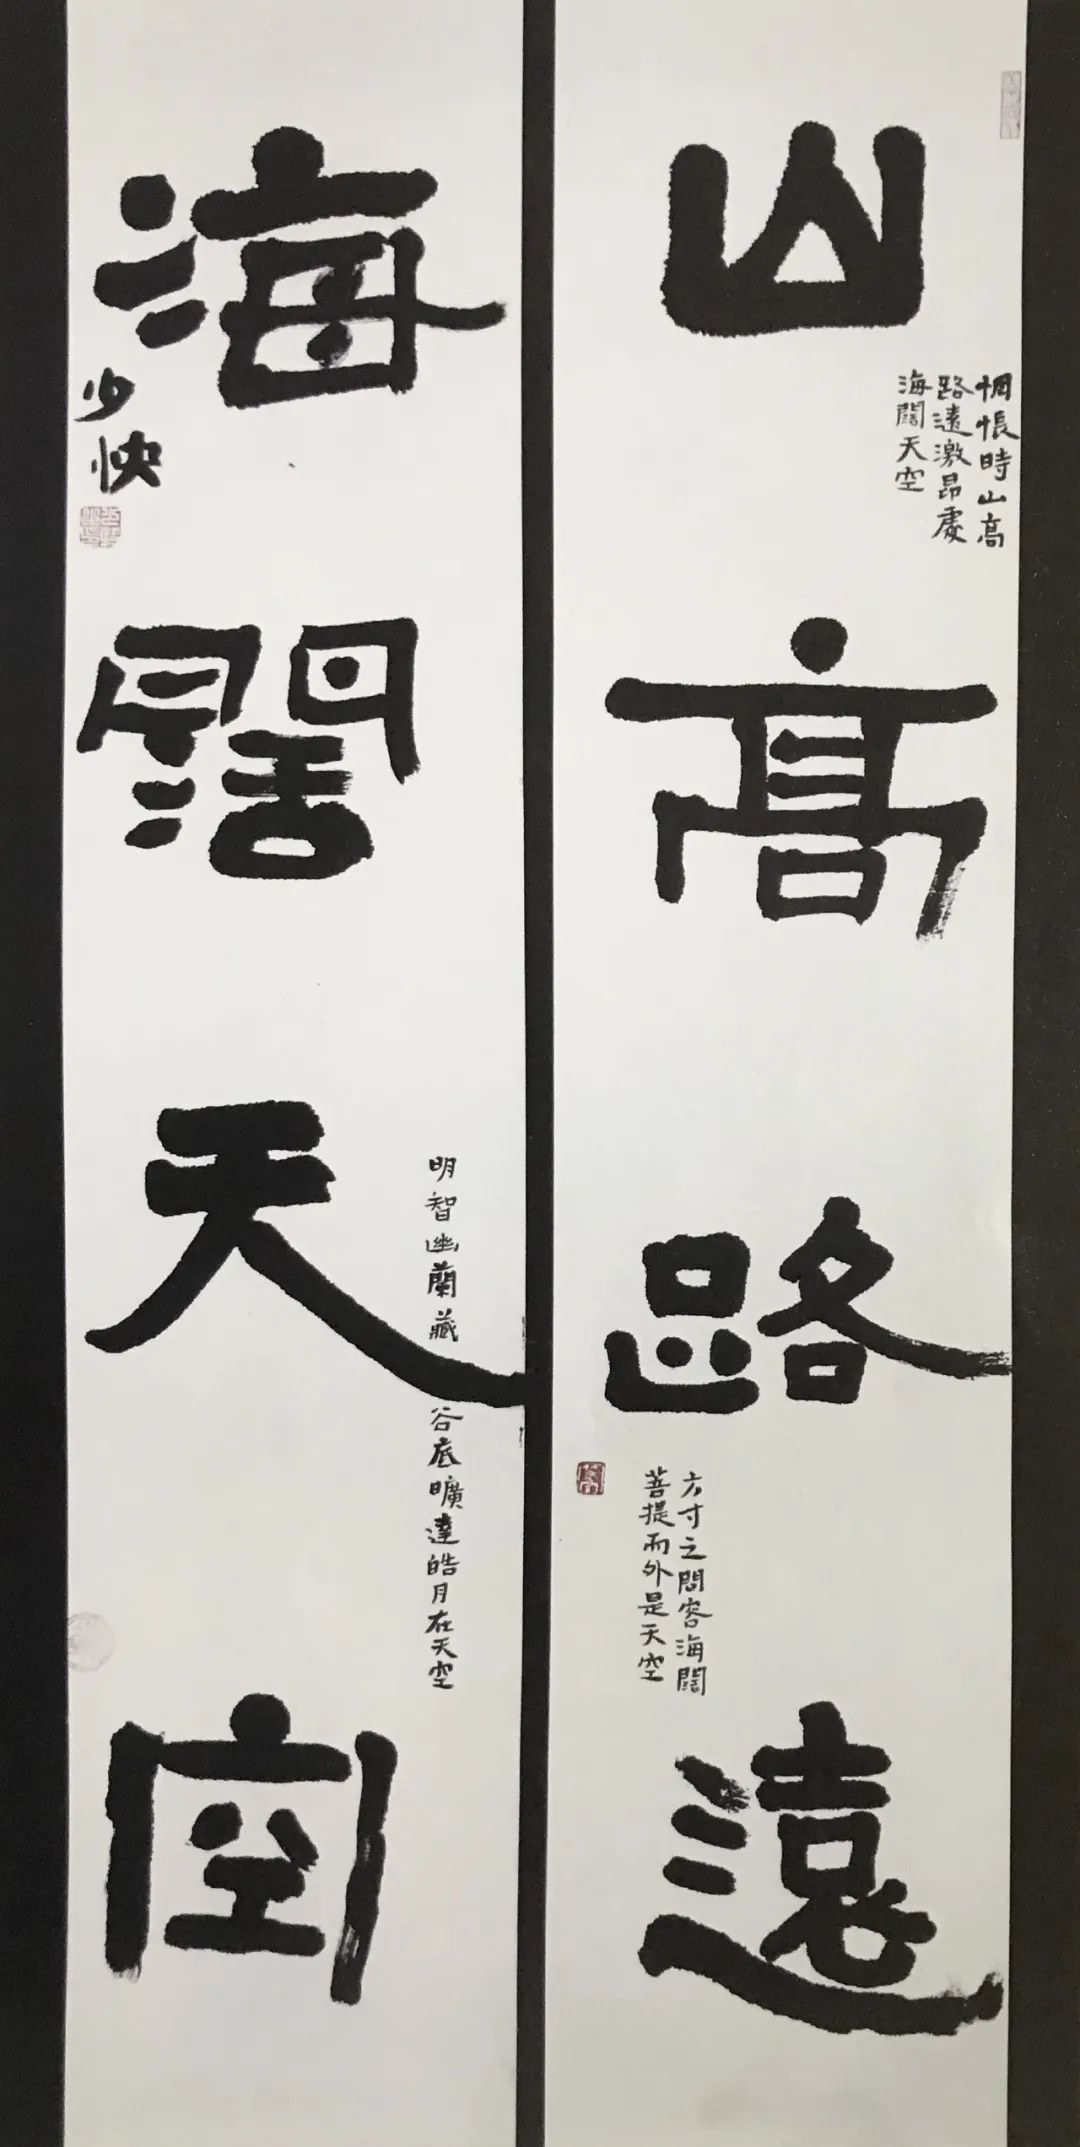 山高路遠
惆悵時山高
路遠激昂處
海闊天空
方寸之間容海闊
菩提而外是天空
海闊天空
明智幽蘭藏谷底曠達皓月在天空
少快